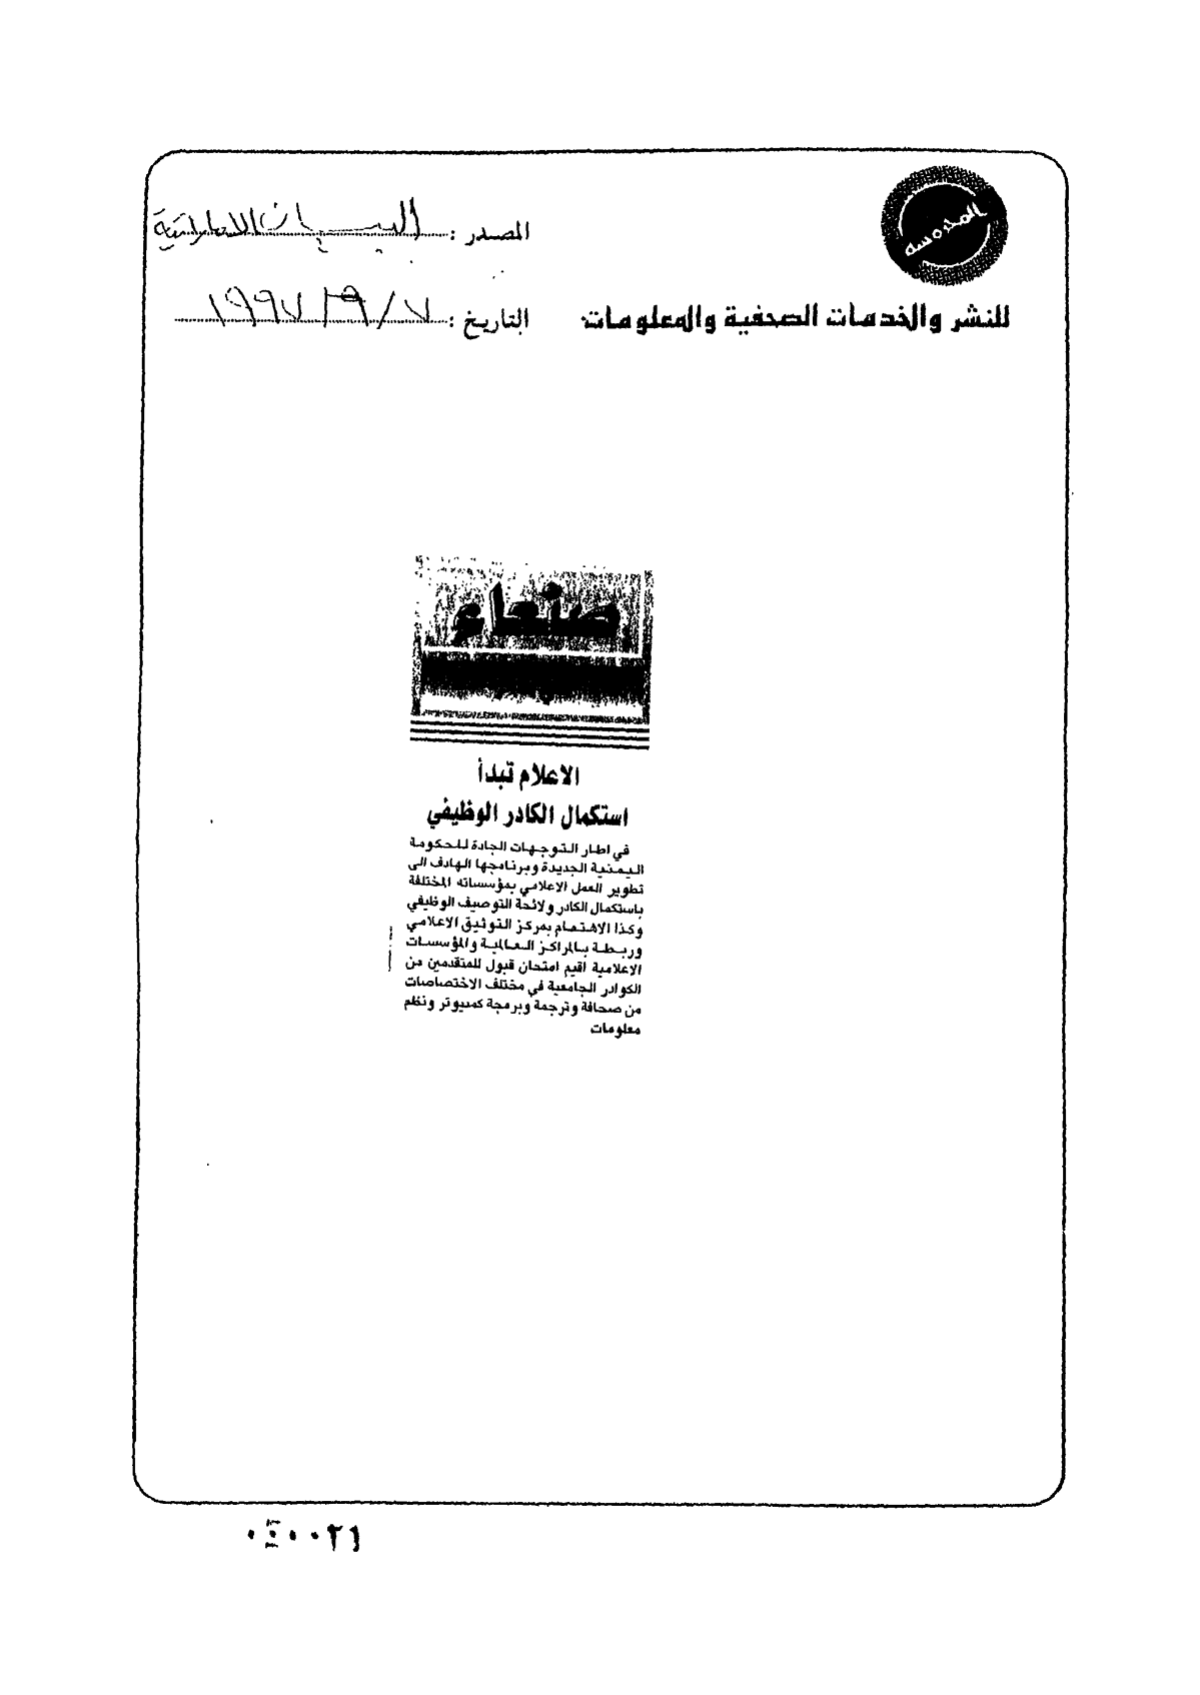 المحروسة
للنشر والخدمات الصحفية والمعلومات
المصدر : البيان الاماراتية
التاريخ : ٧ / ٩ / ١٩٩٧
صنعاء
الاعلام تبدأ
استكمال الكادر الوظيفي
في اطار التوجهات الجادة للحكومة
اليمنية الجديدة وبرنامجها الهادف الى
تطوير العمل الاعلامي بمؤسساته المختلفة
باستكمال الكادر ولائحة التوصيف الوظيفي
وكذا الاهتمام بمركز التوثيق الاعلامي
وربطة بالمراكز العالمية والمؤسسات
الاعلامية اقيم امتحان قبول للمتقدمين من
الكوادر الجامعية في مختلف الاختصاصات
من صحافة وترجمة وبرمجة كمبيوتر ونظم
معلومات